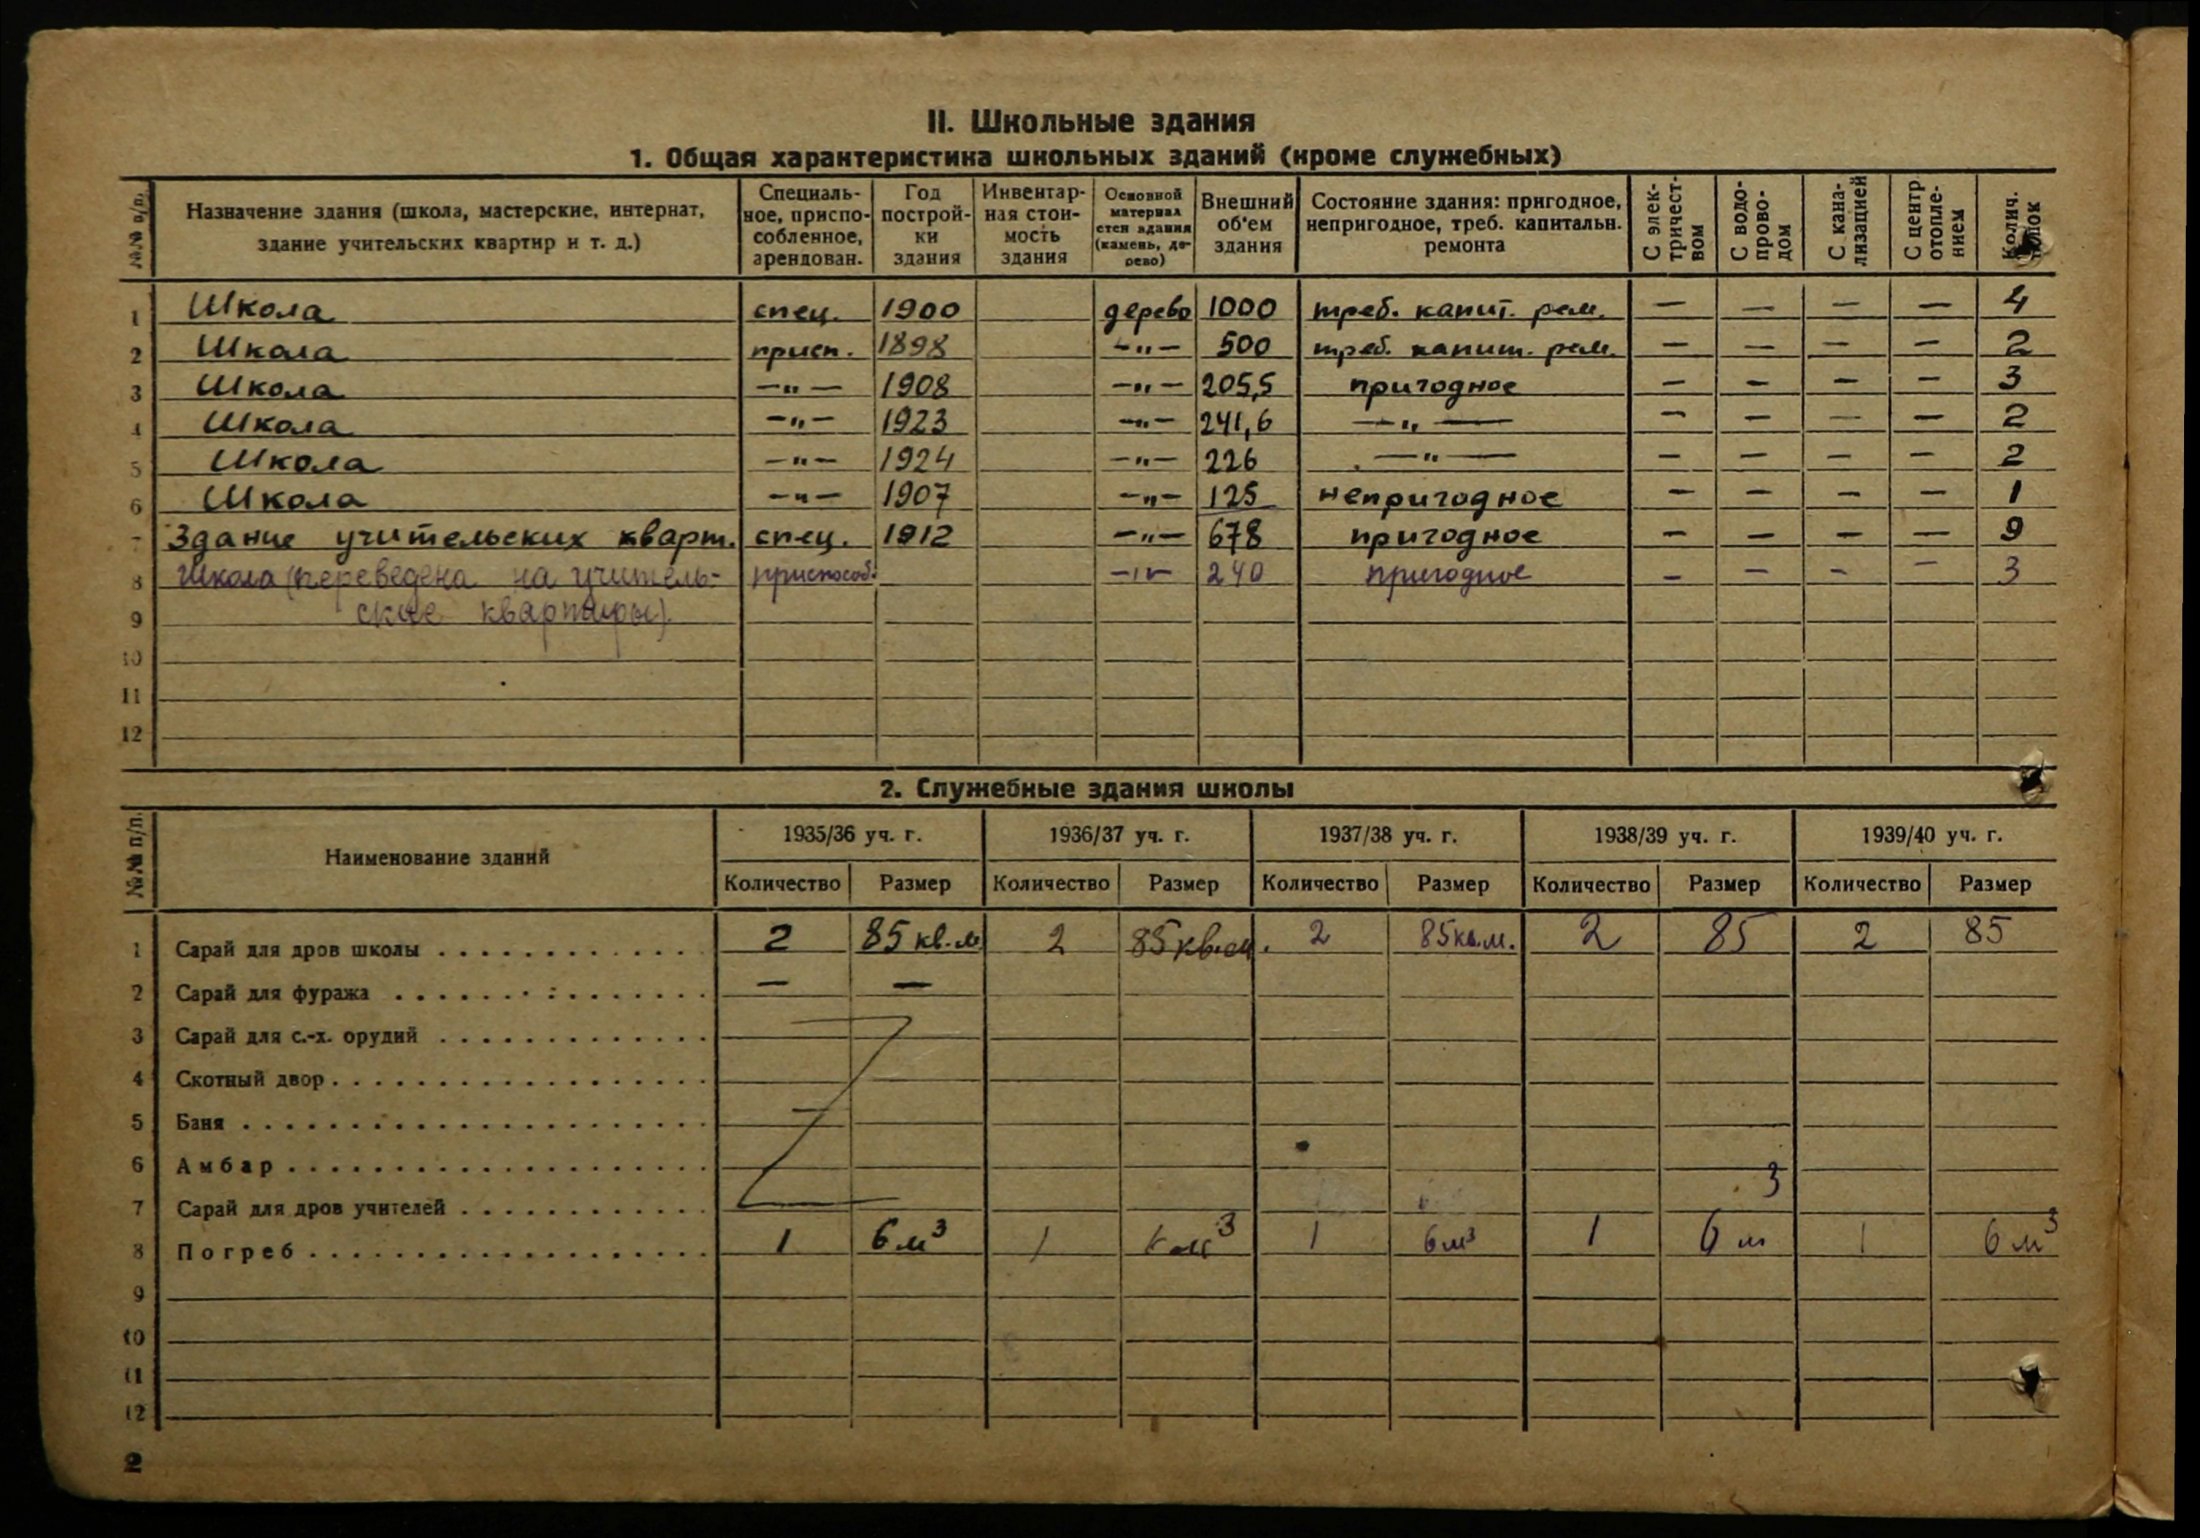 II. Школьные здания
1. Общая характеристика школьных зданий (кроме служебных)
№№ п/п. Назначение здания (школа, мастерские, интернат, здание учительских квартир и т. д.) Специальное, приспособленное, арендован. Год постройки здания Инвентарная стоимость здания Основной материал стен здания (камень, дерево) Внешний об'ем здания Состояние здания: пригодное, непригодное, треб. капитальн. ремонта С электричеством С водопроводом С канализацией С центр. отоплением Колич. топок
1 Школа спец. 1900 дерево 1000 треб. капит. рем. — — — — 4
2 Школа присп. 1898 —"— 500 треб. капит. рем. — — — — 2
3 Школа —"— 1908 —"— 205,5 пригодное — — — — 3
4 Школа —"— 1923 —"— 241,6 —"— — — — — 2
5 Школа —"— 1924 —"— 226 —"— — — — — 2
6 Школа —"— 1907 —"— 125 непригодное — — — — 1
7 Здание учительских кварт. спец. 1912 —"— 678 пригодное — — — — 9
8 Школа (переведена на учитель- приспособ. —"— 240 пригодное — — — — 3
9 ские квартиры)
10
11
12
2. Служебные здания школы
№№ п/п. Наименование зданий 1935/36 уч. г. 1936/37 уч. г. 1937/38 уч. г. 1938/39 уч. г. 1939/40 уч. г.
Количество Размер Количество Размер Количество Размер Количество Размер Количество Размер
1 Сарай для дров школы 2 85 кв.м. 2 85 кв.м. 2 85 кв.м. 2 85 2 85
2 Сарай для фуража — —
3 Сарай для с.-х. орудий
4 Скотный двор
5 Баня
6 Амбар
7 Сарай для дров учителей
8 Погреб 1 6 м³ 1 6 м³ 1 6 м³ 1 6 м³ 1 6 м³
9
10
11
12
2